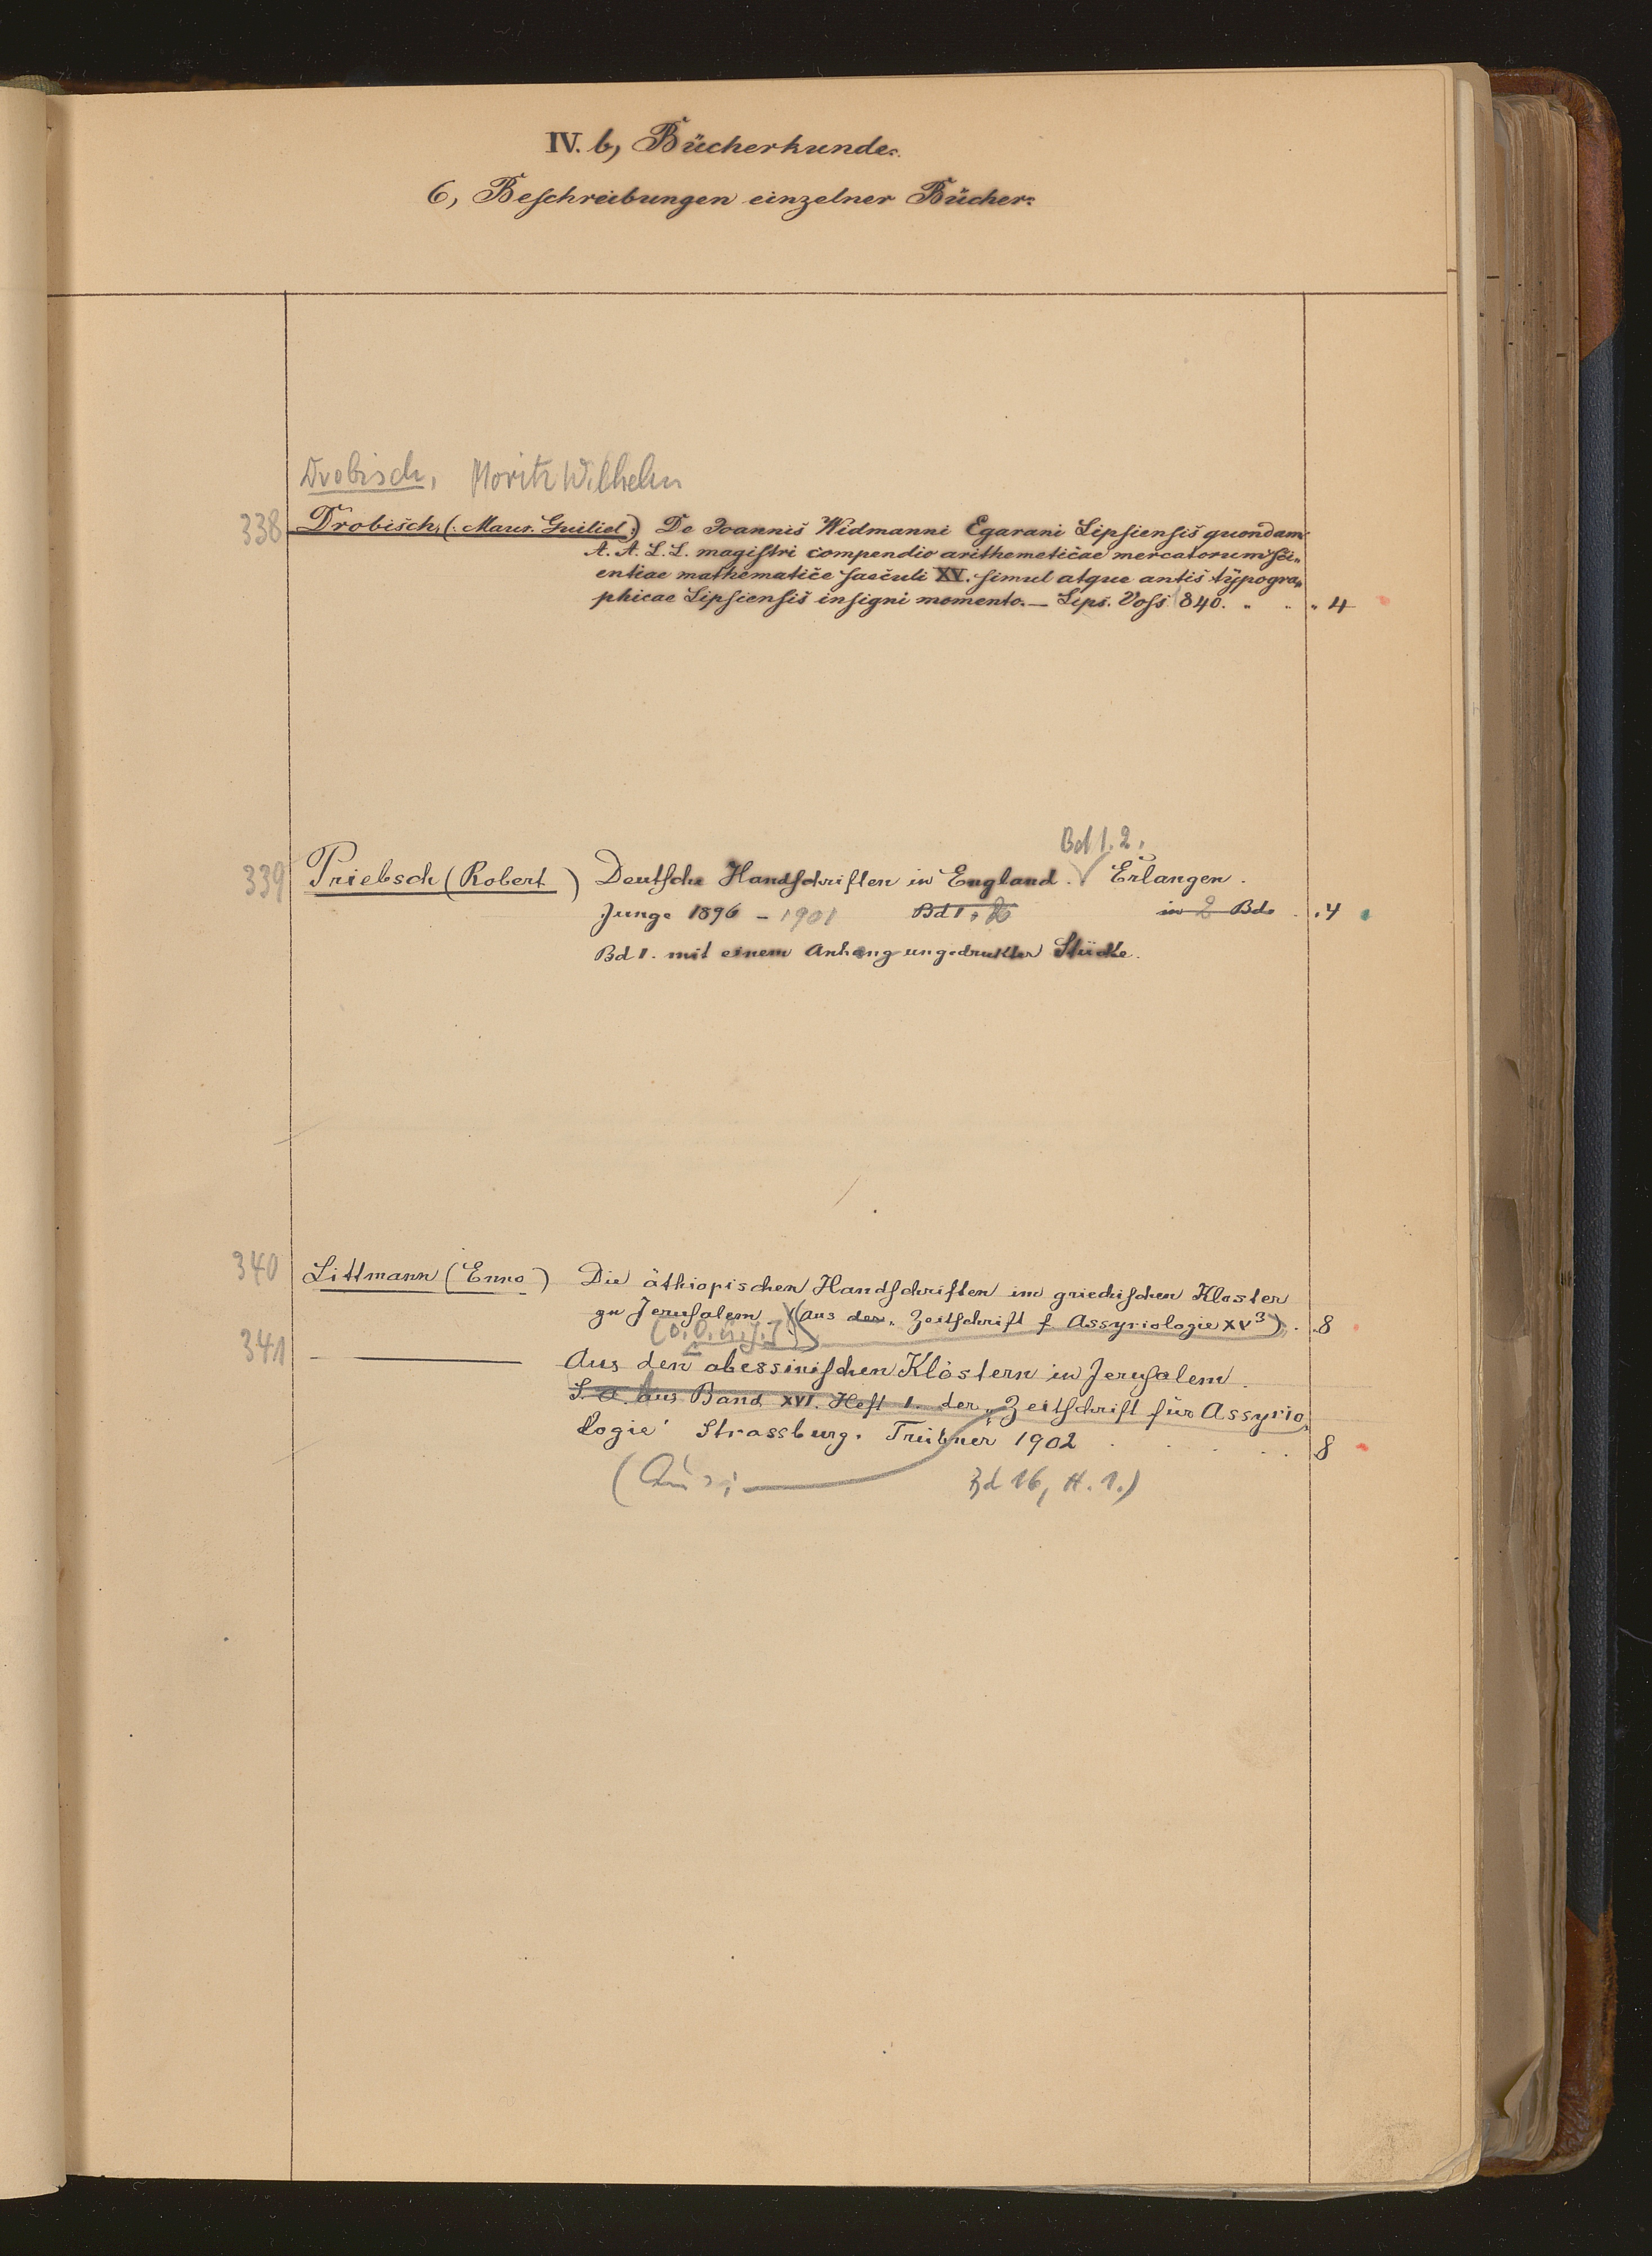 IV. b, Bücherkunde.
6, Beschreibungen einzelner Bücher.
Drobisch, Moritz Wilhelm
338 Drobisch, (: Maur. Guiliel :) De Joannis Widmanni Egarani Lipsiensis quondam
A. A. L. L. magistri compendio arithemeticae mercatorum sci„
entiae mathematice saeculi XV. simul atque antis typogra„
phicae Lipsiensis insigni momento. — Lips. Voss 840. „ „ „ 4
Bd 1. 2.
339 Priebsch (Robert) Deutsche Handschriften in England. Erlangen.
Junge 1896 – 1901 Bd 1. 2 in 2 Bd. . 4
Bd 1. mit einem Anhang ungedruckter Stücke.
340 Littmann (Enno) Die äthiopischen Handschriften im griechischen Kloster
zu Jerusalem (aus der „Zeitschrift f Assyriologie XV 3) . 8
341 ——— Aus den abessinischen Klöstern in Jerusalem.
S. a. Aus Band XVI. Heft 1. der „Zeitschrift für Assyrio„
logie' Strassburg. Trübner 1902 . . . . . 8
(Aus: Bd 16, H. 1.)